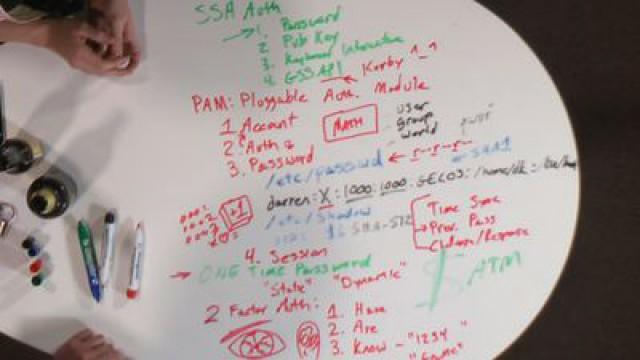 SSH Auth
1. Password
2. Pub Key
3. Keyboard Interactive
4. GSSAPI Kerby ^_^
PAM: Pluggable Auth. Module
1. Account
2. Auth
3. Password
MATH
user
group
world
/etc/passwd r--r--r--
darren:X:1000:1000.GECOS:/home/dk:
/etc/shadow
+1
Time Sync
Prev. Pass
4. Session
ONE Time Password
"State" "Dynamic"
ATM
2 Factor Auth:
1. Have
2. Are
3. Know - "1234"